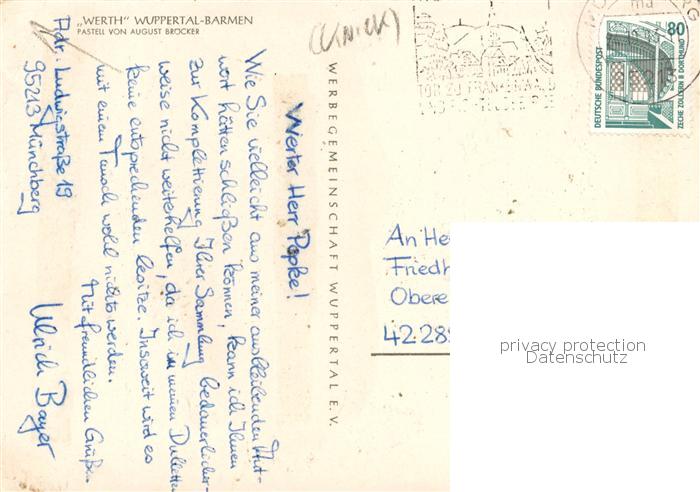 „WERTH" WUPPERTAL-BARMEN
PASTELL VON AUGUST BRÖCKER
Werter Herr Popke!
Wie Sie vielleicht aus meiner ausbleibenden Ant-
wort hätten schließen können, kann ich Ihnen
zur Komplettierung Ihrer Sammlung bedauerlicher-
weise nicht weiterhelfen, da ich in meinen Dubletten
keine entsprechenden besitze. Insoweit wird es
mit einem Tausch wohl nichts werden.
Mit freundlichen Grüßen
Ulrich Bayer
Adr.: Ludwigstraße 19
95213 Münchberg
WERBEGEMEINSCHAFT WUPPERTAL E. V.
TOR ZU FRANKENWALD
80
DEUTSCHE BUNDESPOST
ZECHE ZOLLERN II DORTMUND
An He
Friedh
Obere
42289
privacy protection
Datenschutz